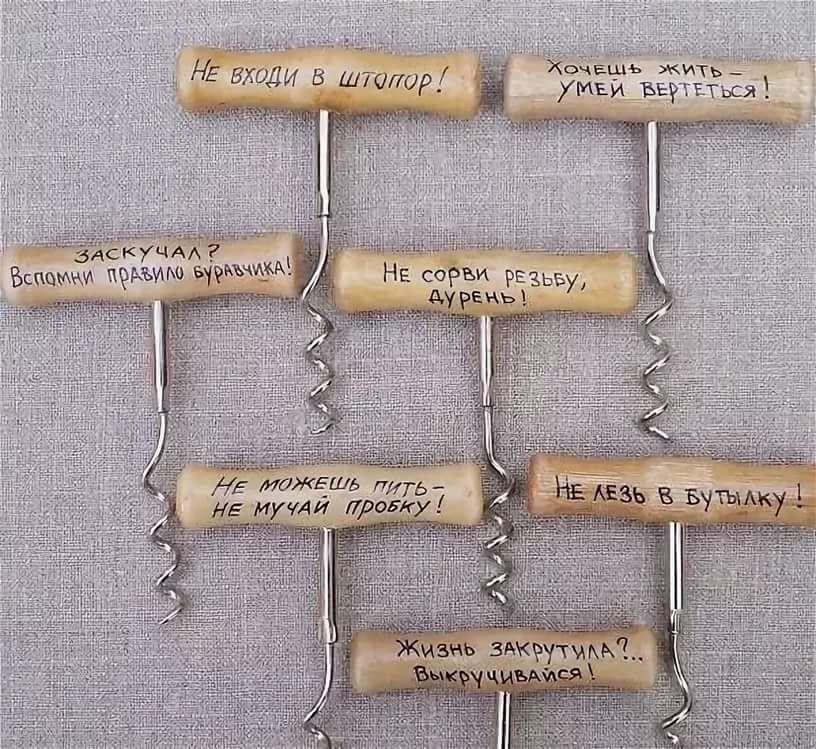 НЕ ВХОДИ В ШТОПОР!
ХОЧЕШЬ ЖИТЬ –
УМЕЙ ВЕРТЕТЬСЯ!
ЗАСКУЧАЛ?
ВСПОМНИ ПРАВИЛО БУРАВЧИКА!
НЕ СОРВИ РЕЗЬБУ,
ДУРЕНЬ!
НЕ МОЖЕШЬ ПИТЬ –
НЕ МУЧАЙ ПРОБКУ!
НЕ ЛЕЗЬ В БУТЫЛКУ!
ЖИЗНЬ ЗАКРУТИЛА?..
ВЫКРУЧИВАЙСЯ!